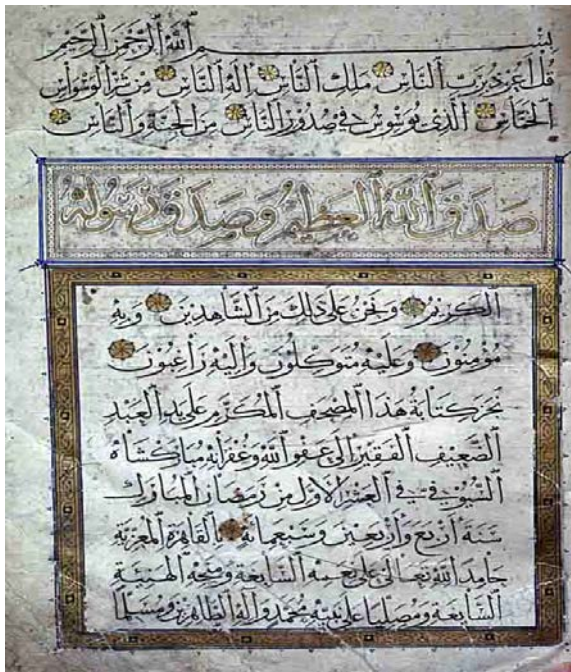 بِسْمِ اللَّهِ الرَّحْمَنِ الرَّحِيمِ
قُلْ أَعُوذُ بِرَبِّ النَّاسِ مَلِكِ النَّاسِ إِلَهِ النَّاسِ مِنْ شَرِّ الْوَسْوَاسِ
الْخَنَّاسِ الَّذِي يُوَسْوِسُ فِي صُدُورِ النَّاسِ مِنَ الْجِنَّةِ وَالنَّاسِ
صَدَقَ اللَّهُ الْعَظِيمُ وَصَدَقَ رَسُولُهُ
الْكَرِيمُ وَنَحْنُ عَلَى ذَلِكَ مِنَ الشَّاهِدِينَ وَبِهِ
مُؤْمِنُونَ وَعَلَيْهِ مُتَوَكِّلُونَ وَإِلَيْهِ رَاغِبُونَ
نجز كتابة هذا المصحف المكرم على يد العبد
الضعيف الفقير إلى عفو الله وغفرانه مباركشاه
السيوفي في العشر الأول من رمضان المبارك
سنة أربع وأربعين وسبعمائة بالقاهرة المعزية
حامد الله تعالى على نعمه السابغة ومنحه الهنيئة
السابغة ومصليا على نبيه محمد وآله الطاهرين ومسلما